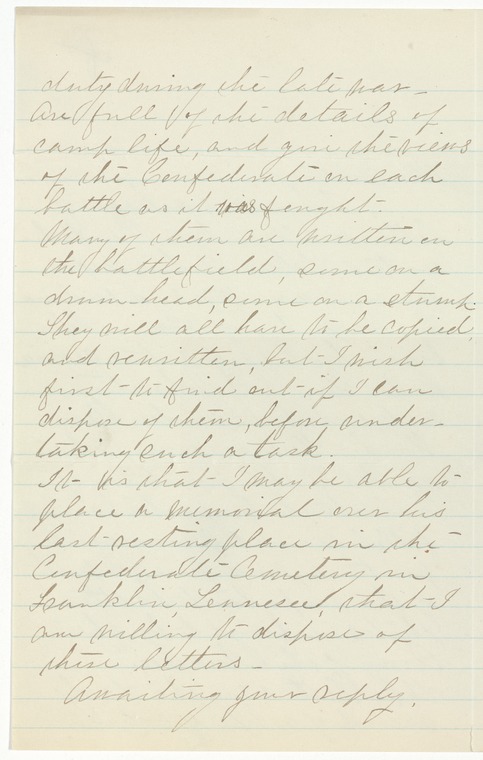 duty during the late war -
Are full of the details of
camp life, and give the views
of the Confederate on each
battle as it was fought.
Many of them are written on
the battlefield, some on a
drum-head, some on a stump.
They will all have to be copied,
and rewritten, but I wish
first to find out if I can
dispose of them, before under-
taking such a task.
It is that I may be able to
place a memorial over his
last resting place in the
Confederate Cemetery in
Franklin, Tennesee, that I
am willing to dispose of
these letters -
Awaiting your reply.